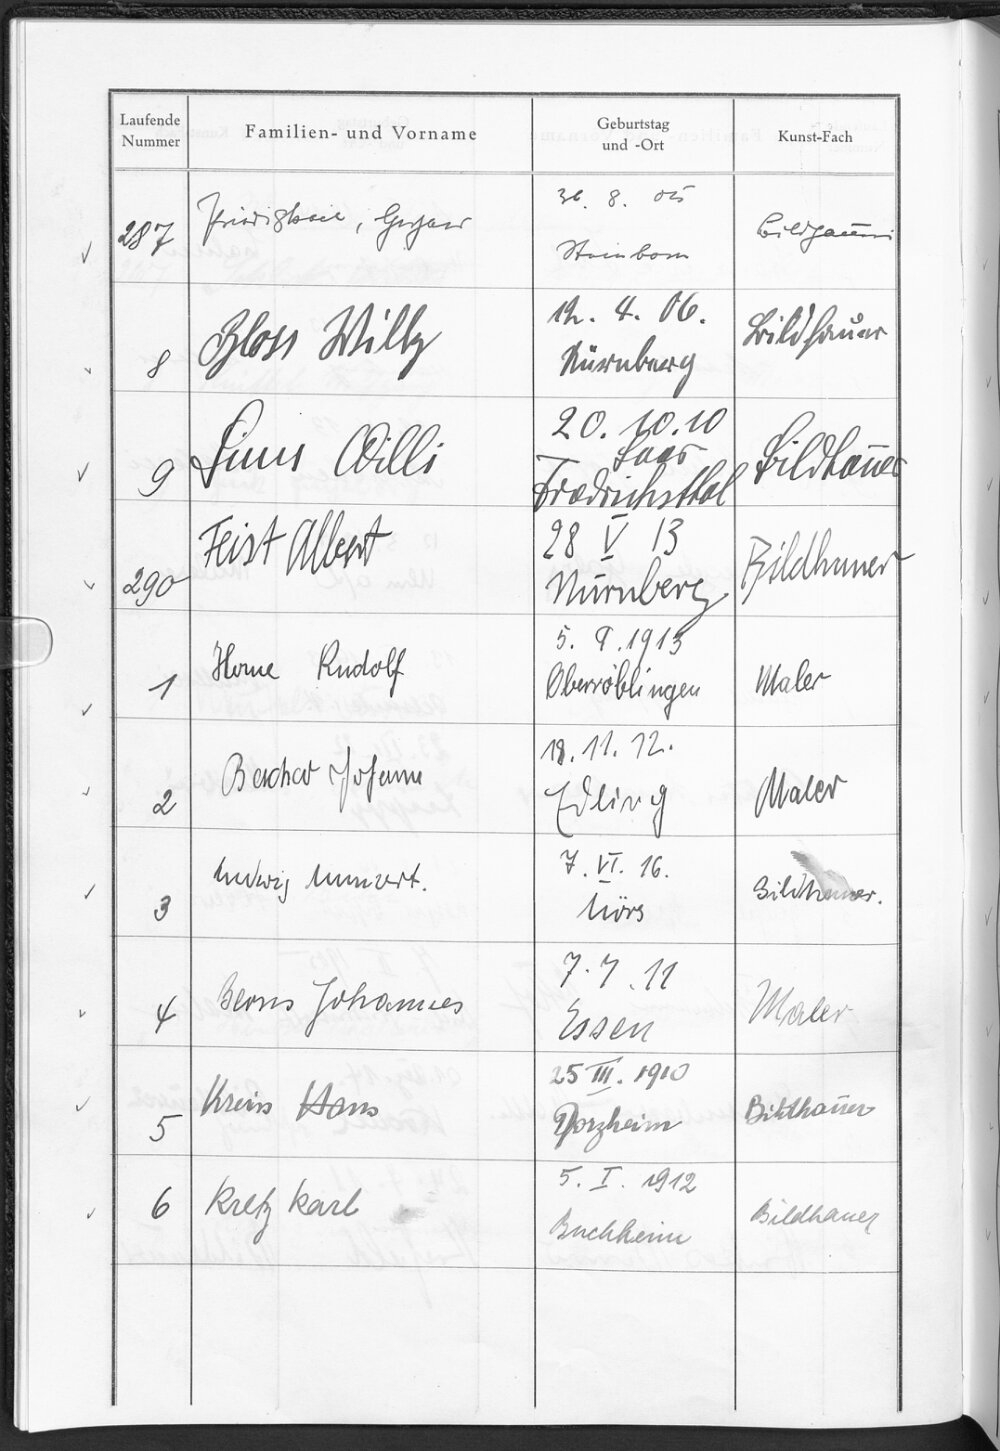 Laufende Nummer
Familien- und Vorname
Geburtstag und -Ort
Kunst-Fach
287
30. 8. 05
Steinborn
Bildhauer
8 Bloss Willy
12. 4. 06.
Nürnberg
Bildhauer
9 Willi
20. 10. 10
Saar
Friedrichsthal
Bildhauer
290 Feist Albert
28 V 13
Nürnberg
Bildhauer
1 Rudolf
5. 1913
Oberröblingen
Maler
2 Johann
18. 11. 12.
Edling
Maler
3 Ludwig
7. VI. 16.
Mörs
Bildhauer.
4 Berns Johannes
7. 7. 11
Essen
Maler
5 Hans
25 III. 1910
Pforzheim
Bildhauer
6 Kretz Karl
5. I. 1912
Buchheim
Bildhauer